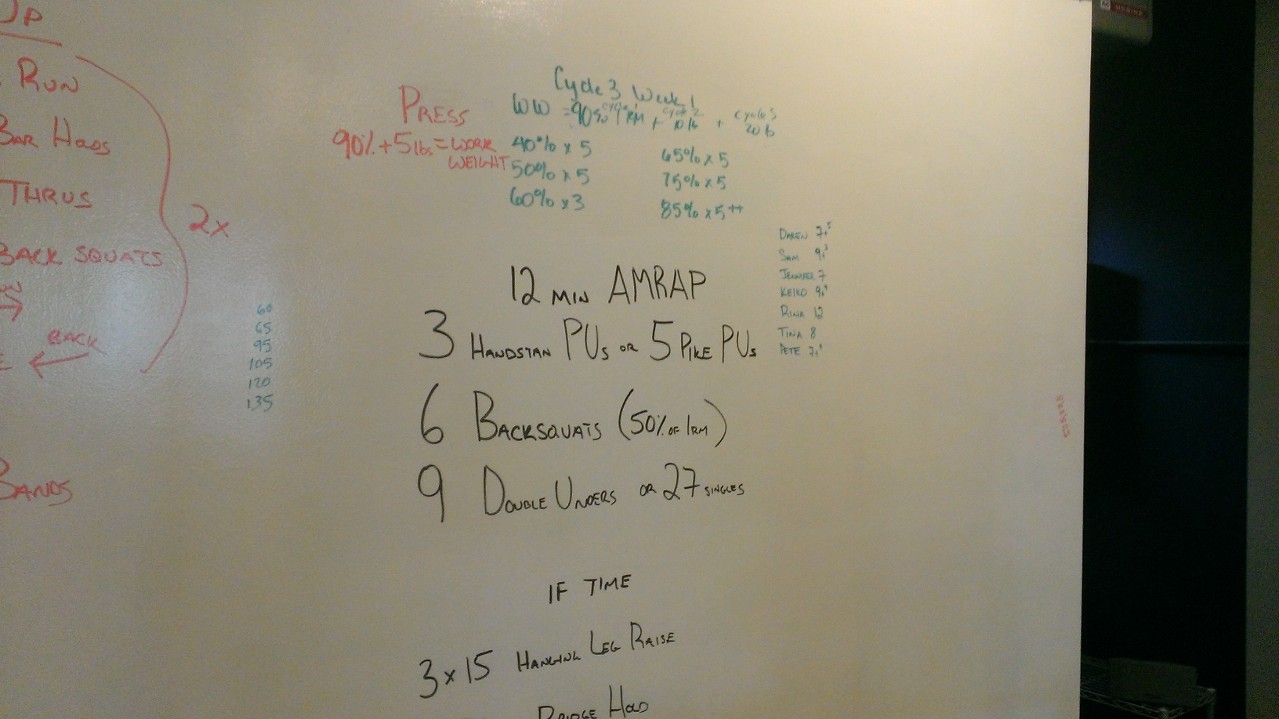 UP
RUN
BAR HOLDS
THRUS
BACK SQUATS
2x
BACK
BANDS
60
65
95
105
120
135
PRESS
90%+5lbs=WORK
WEIGHT
Cycle 3 Week 1
WW = 90% 1RM + cycle 2 10 lb + cycle 3 20 lb
40% x 5
50% x 5
60% x 3
65% x 5
75% x 5
85% x 5++
DAREN 7,5
SAM 9,3
JENNIFER 7
KEIKO 9,
RINA 12
TINA 8
PETE 7,
12 MIN AMRAP
3 HANDSTAN PUs OR 5 PIKE PUs
6 BACKSQUATS (50% OF 1RM)
9 DOUBLE UNDERS OR 27 SINGLES
IF TIME
3 x 15 HANGING LEG RAISE
BRIDGE HOLD